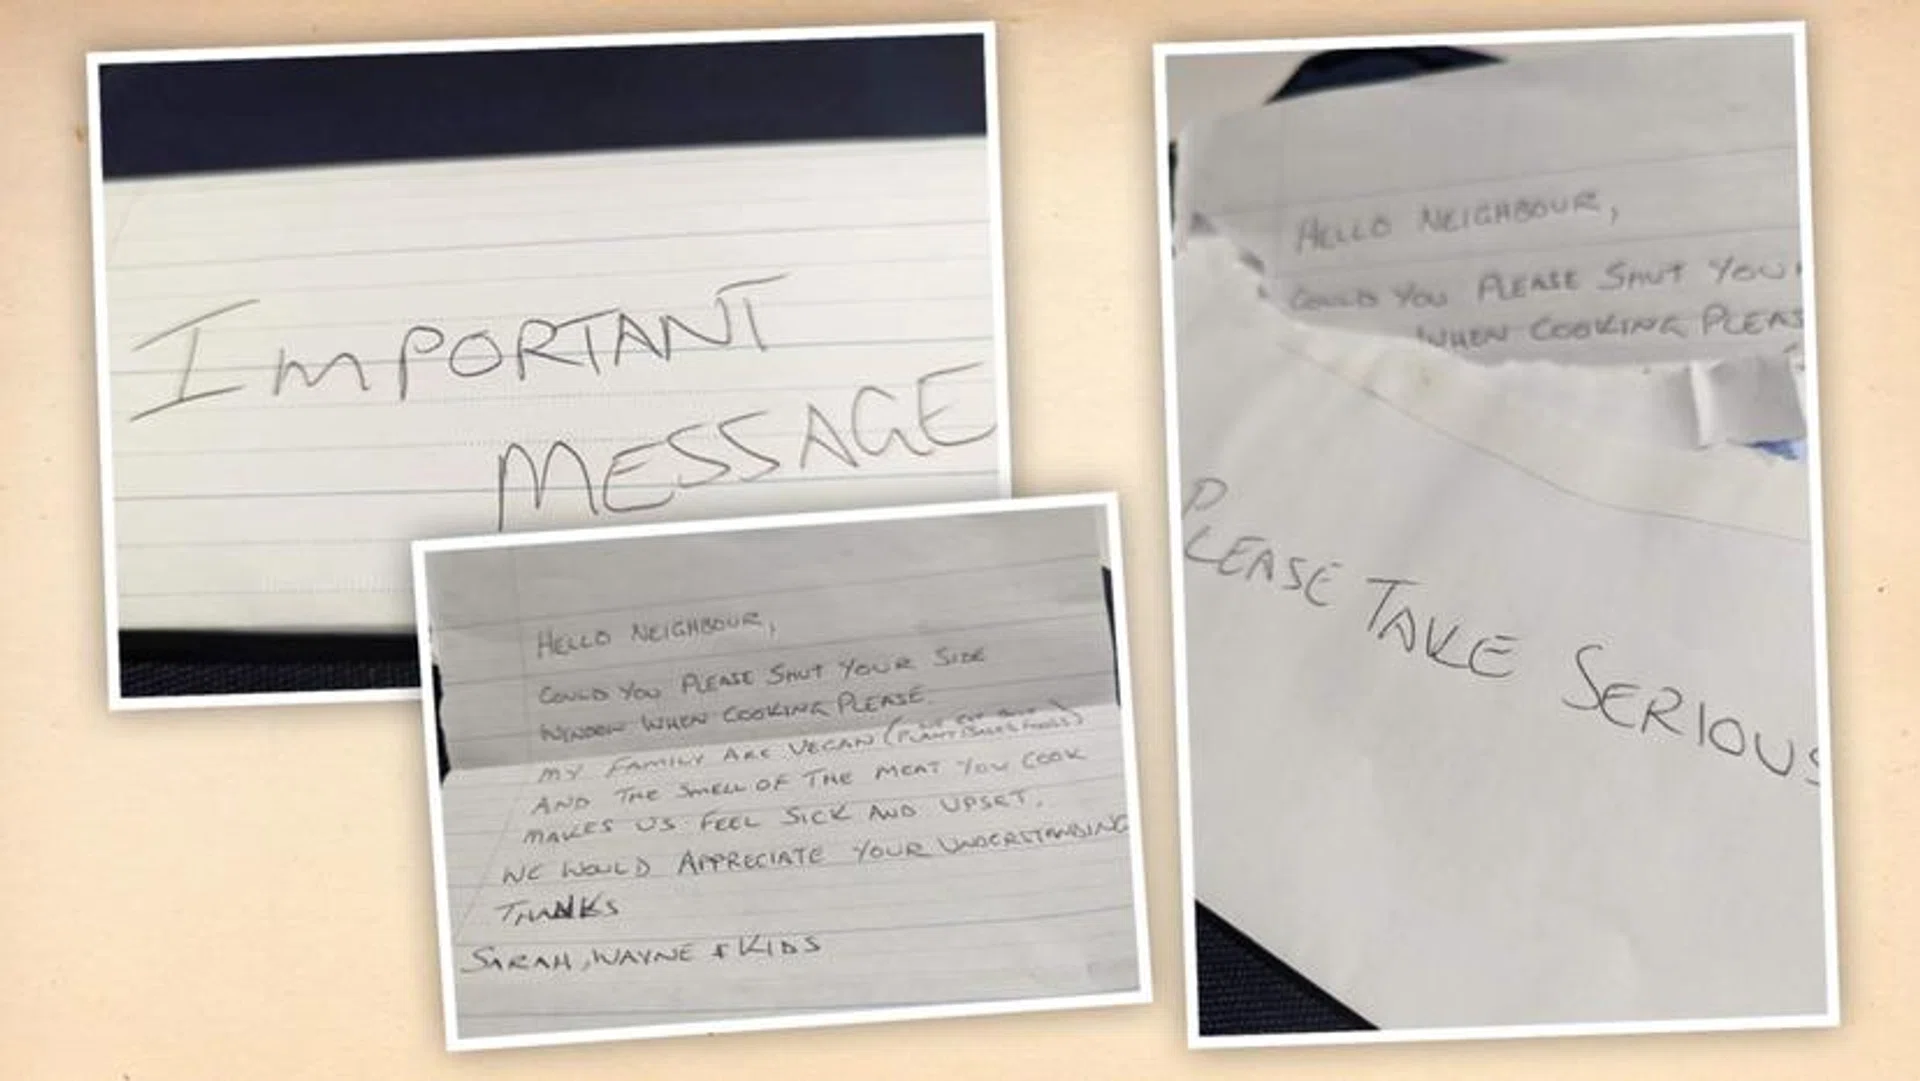 IMPORTANT
MESSAGE
HELLO NEIGHBOUR,
COULD YOU PLEASE SHUT YOUR SIDE
WINDOW WHEN COOKING PLEASE.
MY FAMILY ARE VEGAN (WE EAT ONLY
PLANT BASED FOODS)
AND THE SMELL OF THE MEAT YOU COOK
MAKES US FEEL SICK AND UPSET.
WE WOULD APPRECIATE YOUR UNDERSTANDING
THANKS
SARAH, WAYNE & KIDS
HELLO NEIGHBOUR,
COULD YOU PLEASE SHUT YOU
WHEN COOKING PLEAS
PLEASE TAKE SERIOUS